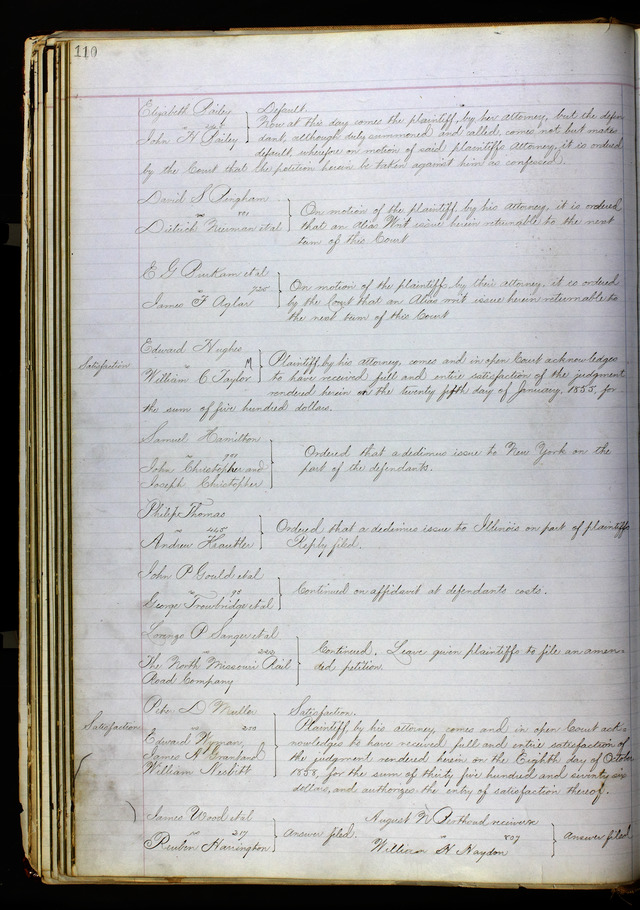 110
Elizabeth Pailey
vs
John H Pailey
Default.
Now at this day comes the plaintiff, by her attorney, but the defen-
dant, although duly summoned and called, comes not but makes
default, wherefore on motion of said plaintiffs attorney, it is ordered
by the Court that the petition herein be taken against him as confessed.
David S Bingham
vs
Dietrich Neuman et al
On motion of the plaintiff, by his attorney, it is ordered
that an Alias Writ issue herein returnable to the next
term of this Court
E G et al
vs 725
James F Aglar
On motion of the plaintiffs, by their attorney, it is ordered
by the Court that an Alias writ issue herein returnable to
the next term of this Court
Satisfaction
Edward Hughes
vs
William C. Taylor
Plaintiff, by his attorney, comes and in open Court acknowledges
to have received full and entire satisfaction of the judgment
rendered herein on the twenty fifth day of January, 1855, for
the sum of five hundred dollars.
Samuel Hamilton
vs
John Christopher and
Joseph Christopher
Ordered that a dedimus issue to New York on the
part of the defendants.
Philip Thomas
vs 445
Andrew
Ordered that a dedimus issue to Illinois on part of plaintiffs
Reply filed.
John P Gould et al
vs 98
George Trowbridge et al
Continued on affidavit at defendants costs.
Lorenzo P Sanger et al
vs
The North Missouri Rail
Road Company
Continued. Leave given plaintiffs to file an amen-
ded petition.
Satisfaction
Peter D
vs 210
Edward Wyman,
James A
William Nesbitt
Satisfaction.
Plaintiff by his attorney, comes and in open Court ack-
nowledges to have received full and entire satisfaction of
the judgment rendered herein on the Eighth day of October
1858, for the sum of thirty five hundred and seventy six
dollars, and authorizes the entry of satisfaction thereof.
James Wood et al
vs 217
Reuben Harrington
Answer filed.
August receiver
vs 827
William H Haydon
Answer filed